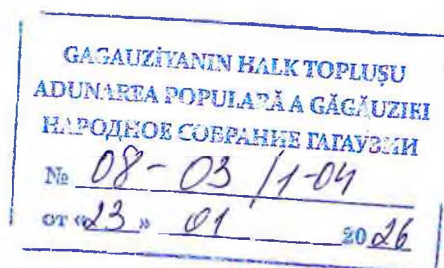 GAGAUZİYANIN HALK TOPLUŞU
ADUNAREA POPULARĂ A GĂGĂUZIEI
НАРОДНОЕ СОБРАНИЕ ГАГАУЗИИ
№ 08-03/1-04
от «23» 01 2026